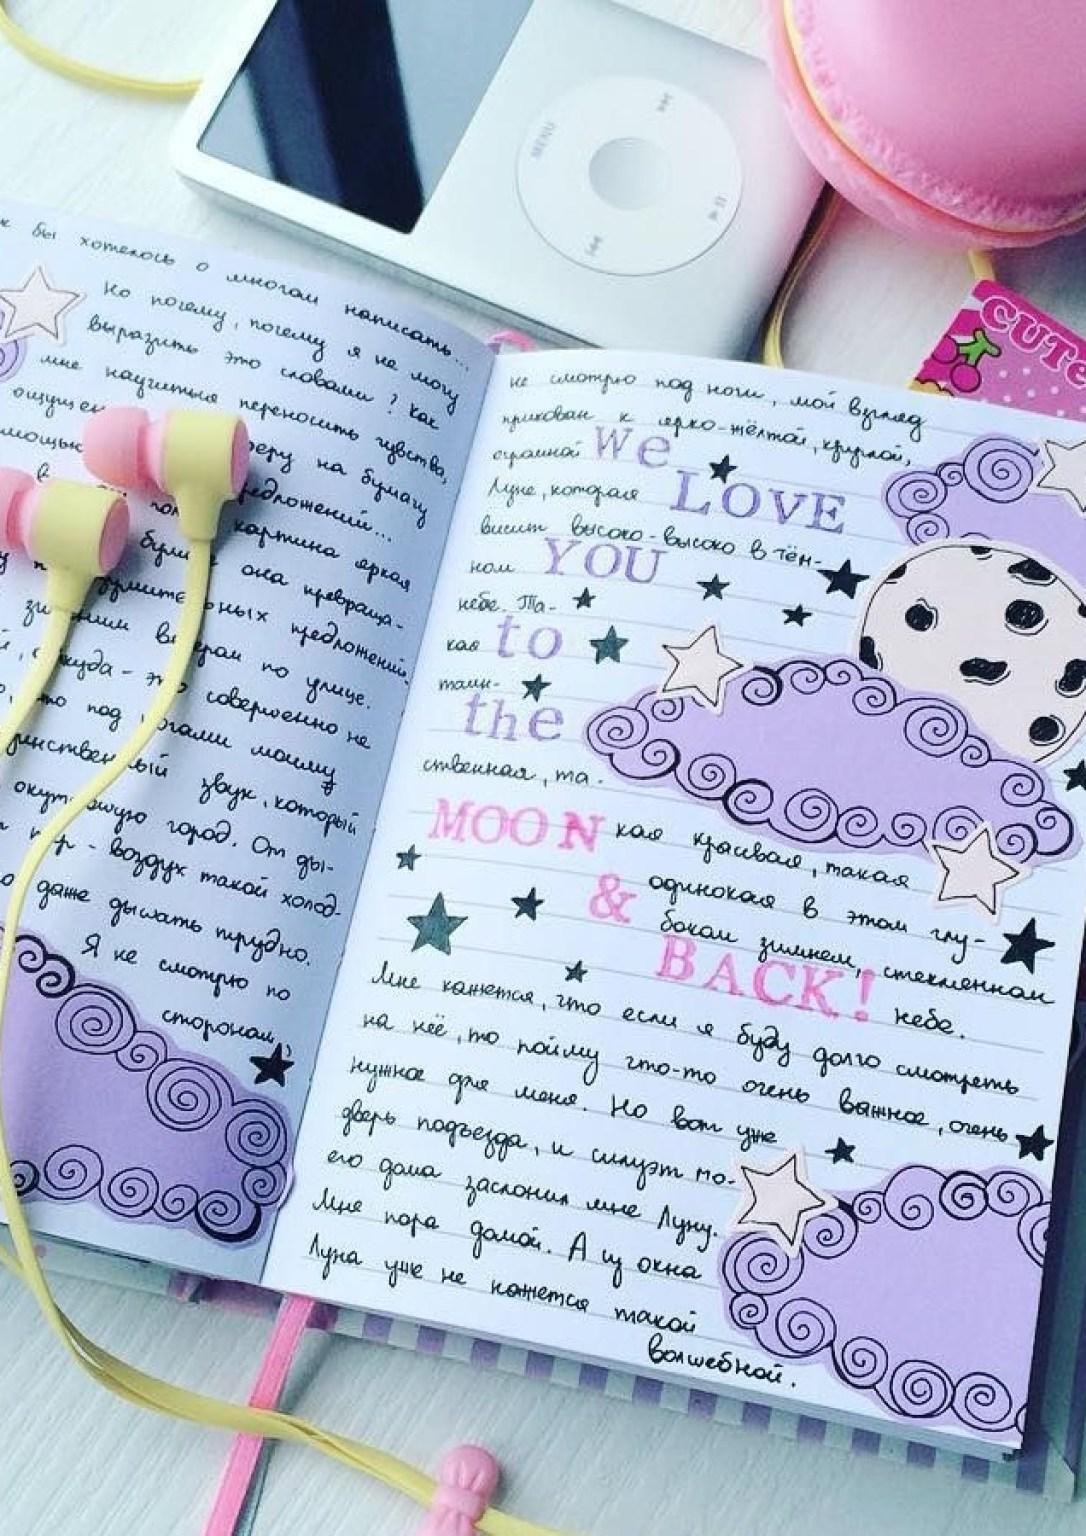 MENU
CUTe
бы хотелось о многом написать...
Но почему, почему я не могу
выразить это словами? Как
мне научиться переносить чувства,
ощущен
мощью на бумагу
предложений...
картина яркая
она превраща-
ных предложений.
по улице.
это совершенно не
под ногами моими
звук, который
город. От ды-
воздух такой холод-
даже дышать трудно.
Я не смотрю по
сторонам,
не смотрю под ноги, мой взгляд
прикован к ярко-жёлтой, круглой,
огромной
We
LOVE
Луне, которая
висит высоко-высоко в тём-
ном
YOU
небе. Та-
кая
to
таин-
the
ственная, та-
MOON
кая красивая, такая
&
одинокая в этом глу-
боком зимнем, стеклянном
BACK!
небе.
Мне кажется, что если я буду долго смотреть
на неё, то пойму что-то очень важное, очень
нужное для меня. Но вот уже
дверь подъезда, и силуэт мо-
его дома заслонил мне Луну.
Мне пора домой. А из окна
Луна уже не кажется такой
волшебной.